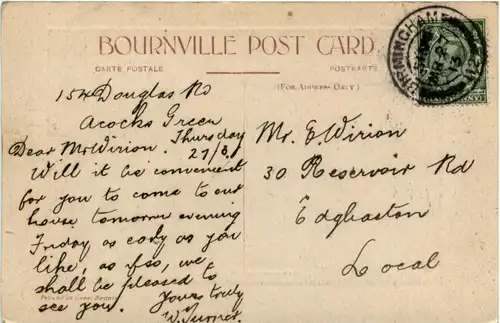 BOURNVILLE POST CARD
CARTE POSTALE
POSTKARTE
(FOR ADDRESS ONLY)
BIRMINGHAM
154 Douglas Rd
Acocks Green
Thursday
Dear Mr Wirion.
Will it be convenient
for you to come to our
house tomorrow evening
Friday, as early as you
like, as if so, we
shall be pleased to
see you. Yours truly
W. Turner.
Printed in Great Britain
Mr. E. Wirion
30 Reservoir Rd
Edgbaston
Local